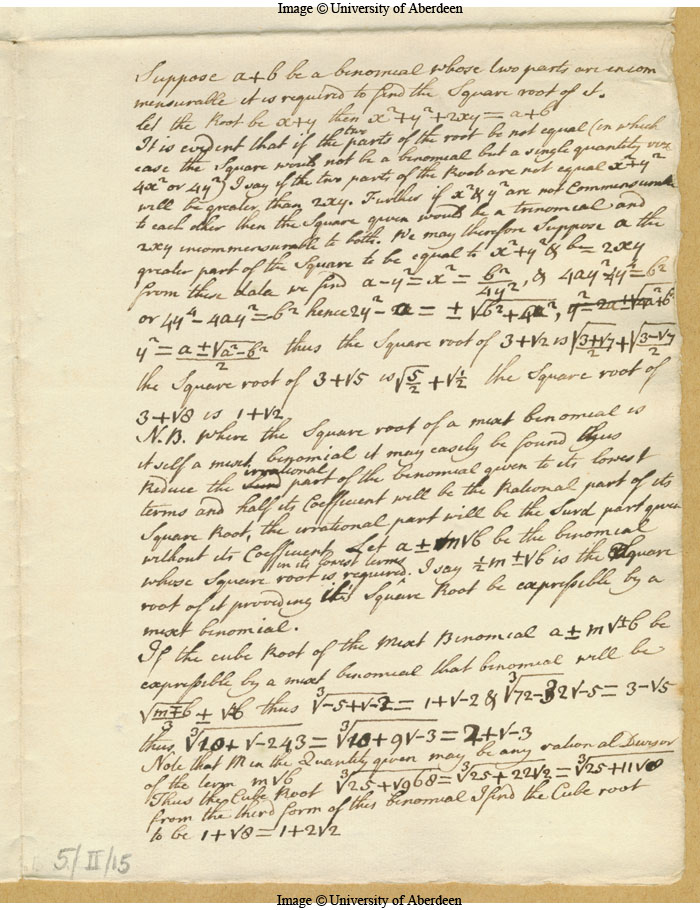 Image © University of Aberdeen
Suppose a+b be a binomial whose two parts are incom
mensurable it is required to find the Square root of it.
Let the Root be x+y then x²+y²+2xy = a+b
It is evident that if the two parts of the root be not equal (in which
case the Square would not be a binomial but a single quantity viz
4x² or 4y²) I say if the two parts of the Root are not equal x²+y²
will be greater than 2xy. Further if x² & y² are not Commensurable
to each other then the Square given would be a trinomial and
2xy incommensurable to both. We may therefore Suppose a the
greater part of the Square to be equal to x²+y² & b = 2xy
from these data we find a-y² = x² = b²/4y², & 4ay²-4y⁴ = b²
or 4y⁴-4ay² = -b² hence 2y² - a = ±√
y² = a±√a²-b²/2 thus the Square root of 3+√2 is √3+√7/2 + √3-√7/2
the Square root of 3+√5 is √5/2 + √1/2 the Square root of
3+√8 is 1+√2
N.B. Where the Square root of a mixt binomial is
itself a mixt binomial it may easily be found thus
Reduce the irrational part of the binomial given to its lowest
terms and half its Coefficient will be the Rational part of its
Square Root, the irrational part will be the Surd part given
without its Coefficient. Let a±m√b be the binomial
in its lowest terms
whose Square root is required. I say ½m±√b is the Square
root of it providing its Square Root be expressible by a
mixt binomial.
If the cube Root of the Mixt Binomial a±m√±b be
expressible by a mixt binomial that binomial will be
thus ∛-5+√-2 = 1+√-2 & ∛72-32√-5 = 3-√5
thus ∛10+√-243 = ∛10+9√-3 = 2+√-3
Note that M in the Quantity given may be any rational Divisor
of the term m√b
Thus the Cube Root ∛25+√968 = ∛25+22√2 = ∛25+11√8
from the third form of this binomial I find the Cube root
to be 1+√8 = 1+2√2
5/II/15
Image © University of Aberdeen